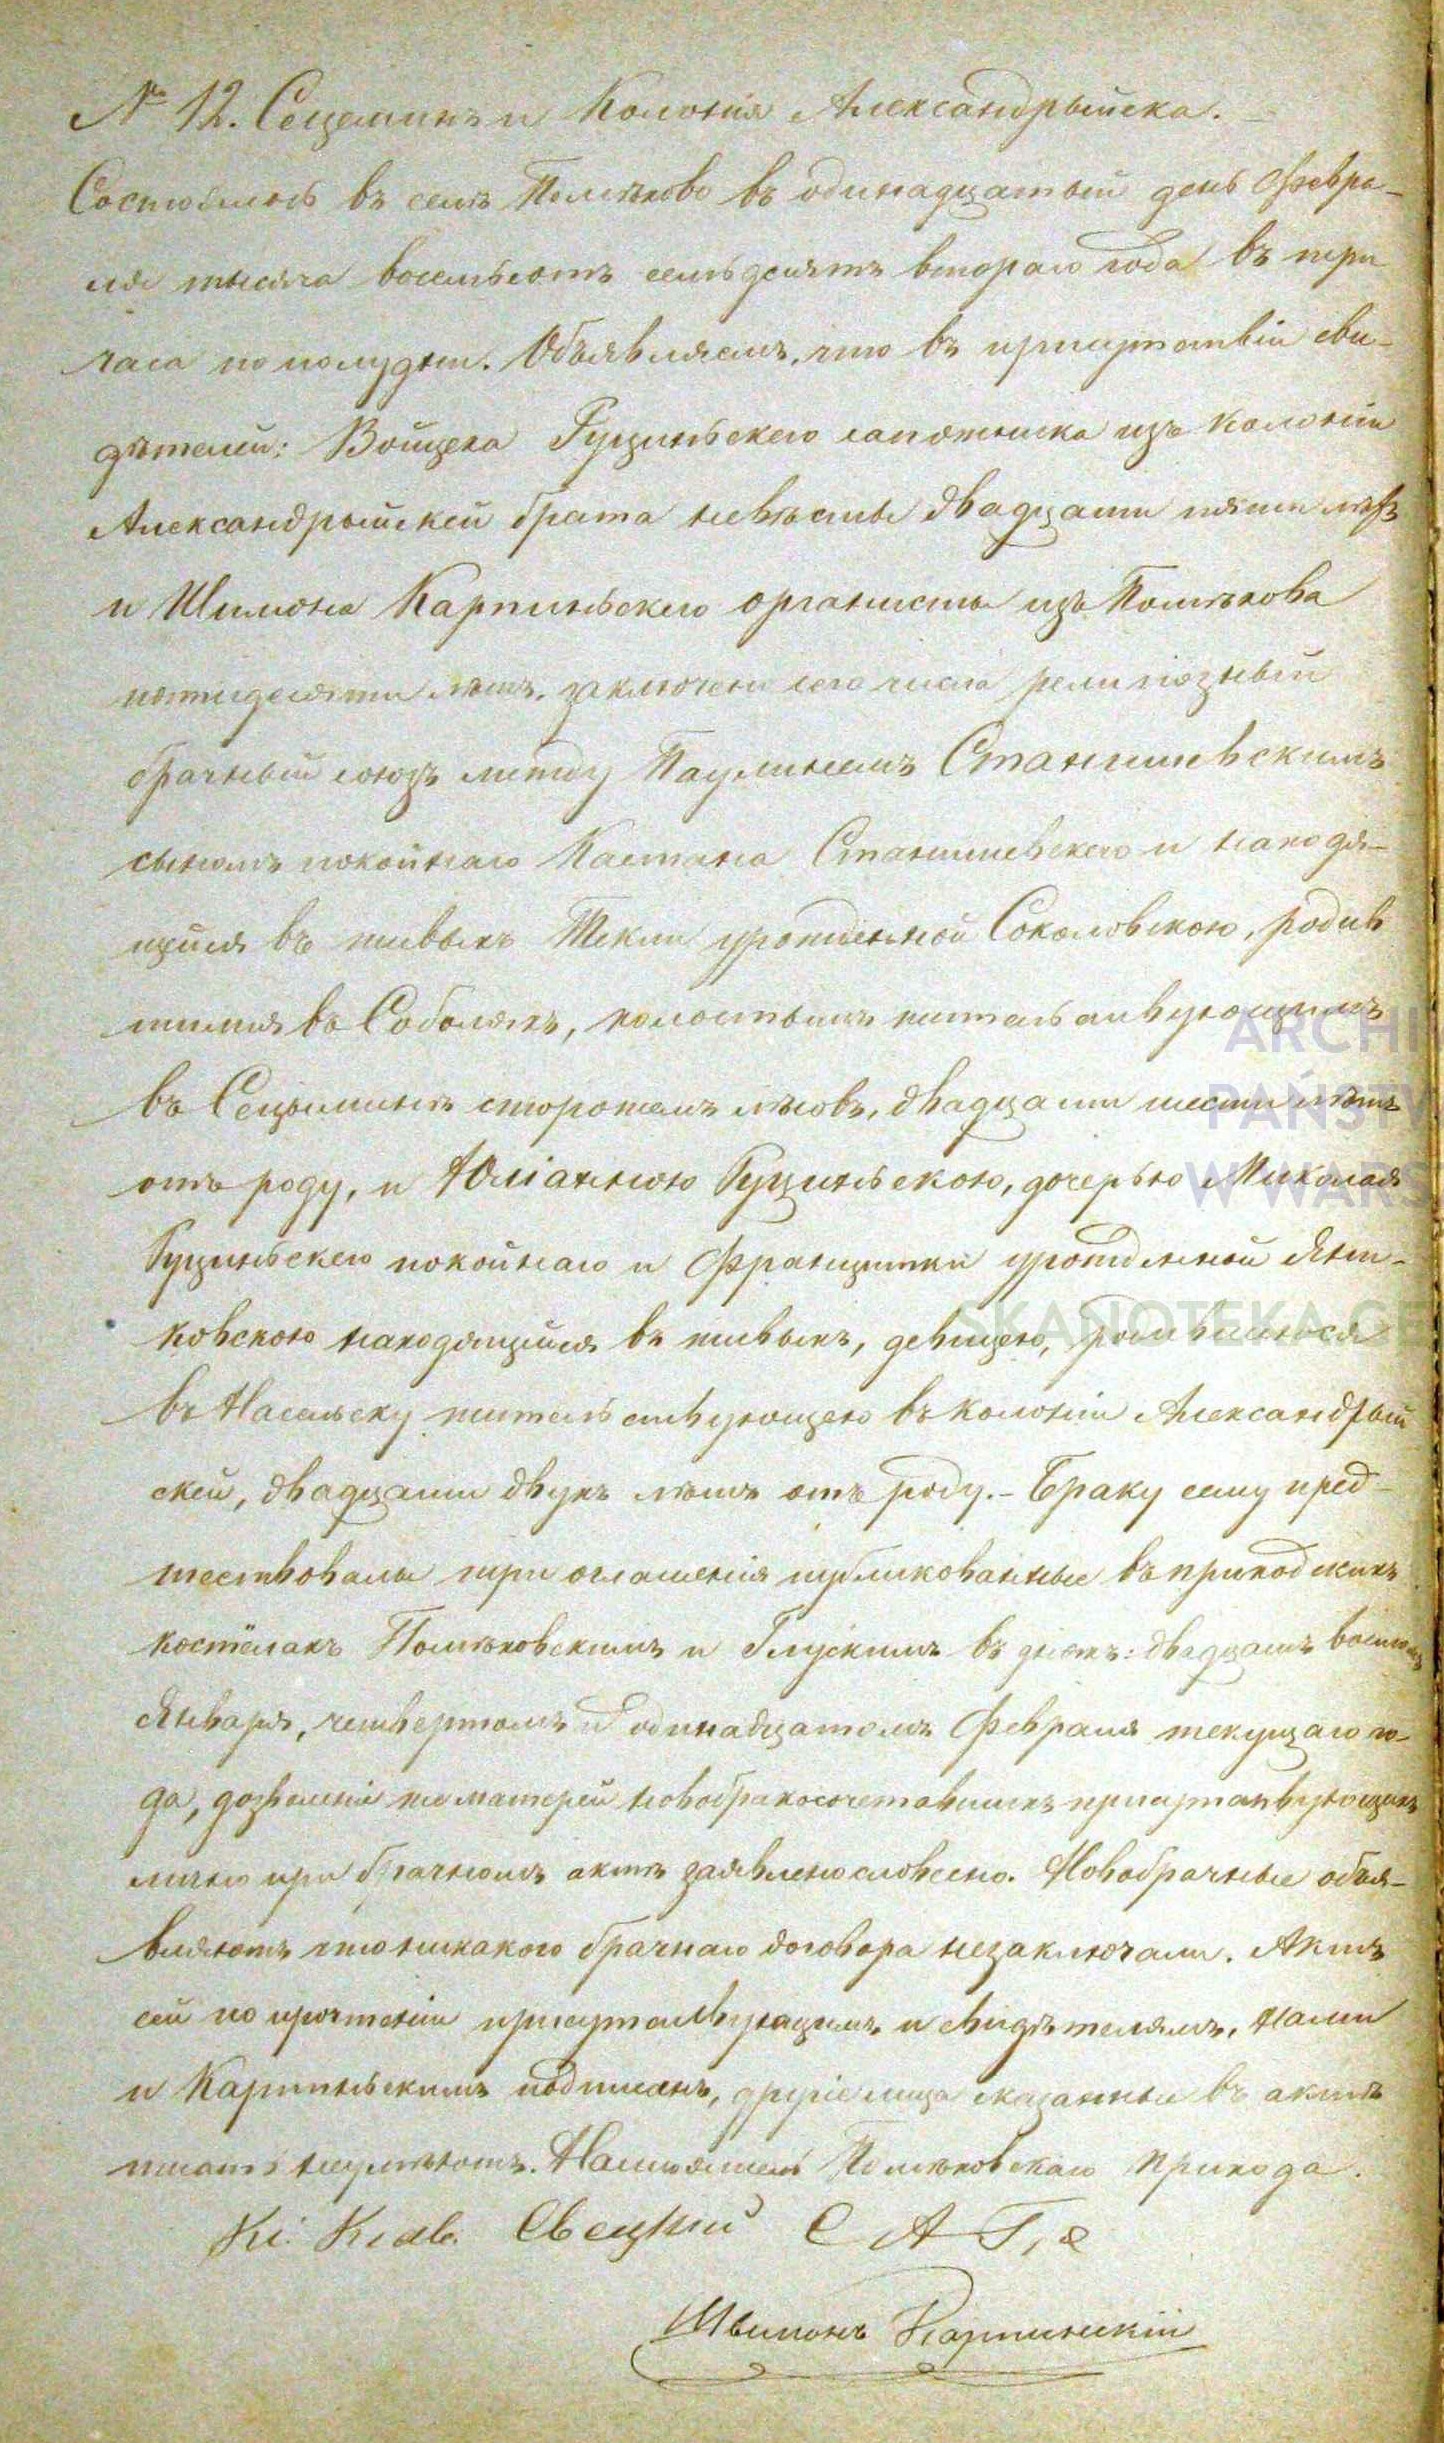 № 12. Сецеминъ и Колонія Александрыйска.
Состоялось въ селѣ Помѣхово въ одинадцатый день Февра-
ля тысяча восемьсотъ семьдесятъ втораго года въ три
часа по полудни. Объявляемъ, что въ присутствіи сви-
дѣтелей: Войцеха Гуциньскего сапожника изъ Колоніи
Александрыйскей брата невѣсты двадцати пяти лѣтъ
и Шимона Карпиньскего органисты изъ Помѣхова
пятидесяти лѣтъ, заключенъ сего числа религіозный
брачный союзъ между Паулинемъ Станишевскимъ
сыномъ покойнаго Каетана Станишевскего и находя-
щейся въ живыхъ Текли урожденной Соколовскою, родив
шимся въ Соболяхъ, холостымъ жительствующимъ
въ Сецыминѣ сторожемъ лѣсовъ, двадцати шести лѣтъ
отъ роду, и Юліанною Гуциньскою, дочерью Миколая
Гуциньскего покойнаго и Францишки урожденной Янч-
ковскою находящейся въ живыхъ, девицею, родившеюся
въ Насельску жительствующею въ Колоніи Александрый
скей, двадцати двухъ лѣтъ отъ роду. - Браку сему пред-
шествовалы три оглашенія публикованные въ приходскихъ
костёлахъ Помѣховскимъ и Глускимъ въ дняхъ: двадцать восьмомъ
Января, четвертомъ и одинадцатомъ Февраля текущаго го-
да, дозволеніе же матерей новобракосочетавшихъ присутствующихъ
лично при брачномъ актѣ заявлено словесно. Новобрачные объя-
вляютъ что никакого брачнаго договора незаключали. Актъ
сей по прочтеніи присутствующимъ и свидѣтелямъ, Нами
и Карпиньскимъ подписанъ, другіе лица сказанные въ актѣ
писать неумѣютъ. Настоятель Помѣховскаго Прихода.
Кс. Свецкий С А Г, я
Шимонъ Карпинскій
ARCHI
PAŃSTW
W WARS
SKANOTEKA.GE